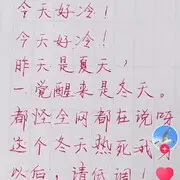 今天好冷！
今天好冷！
昨天是夏天，
一觉醒来是冬天。
都怪全网都在说呀
这个冬天热死我
以后，请低调！